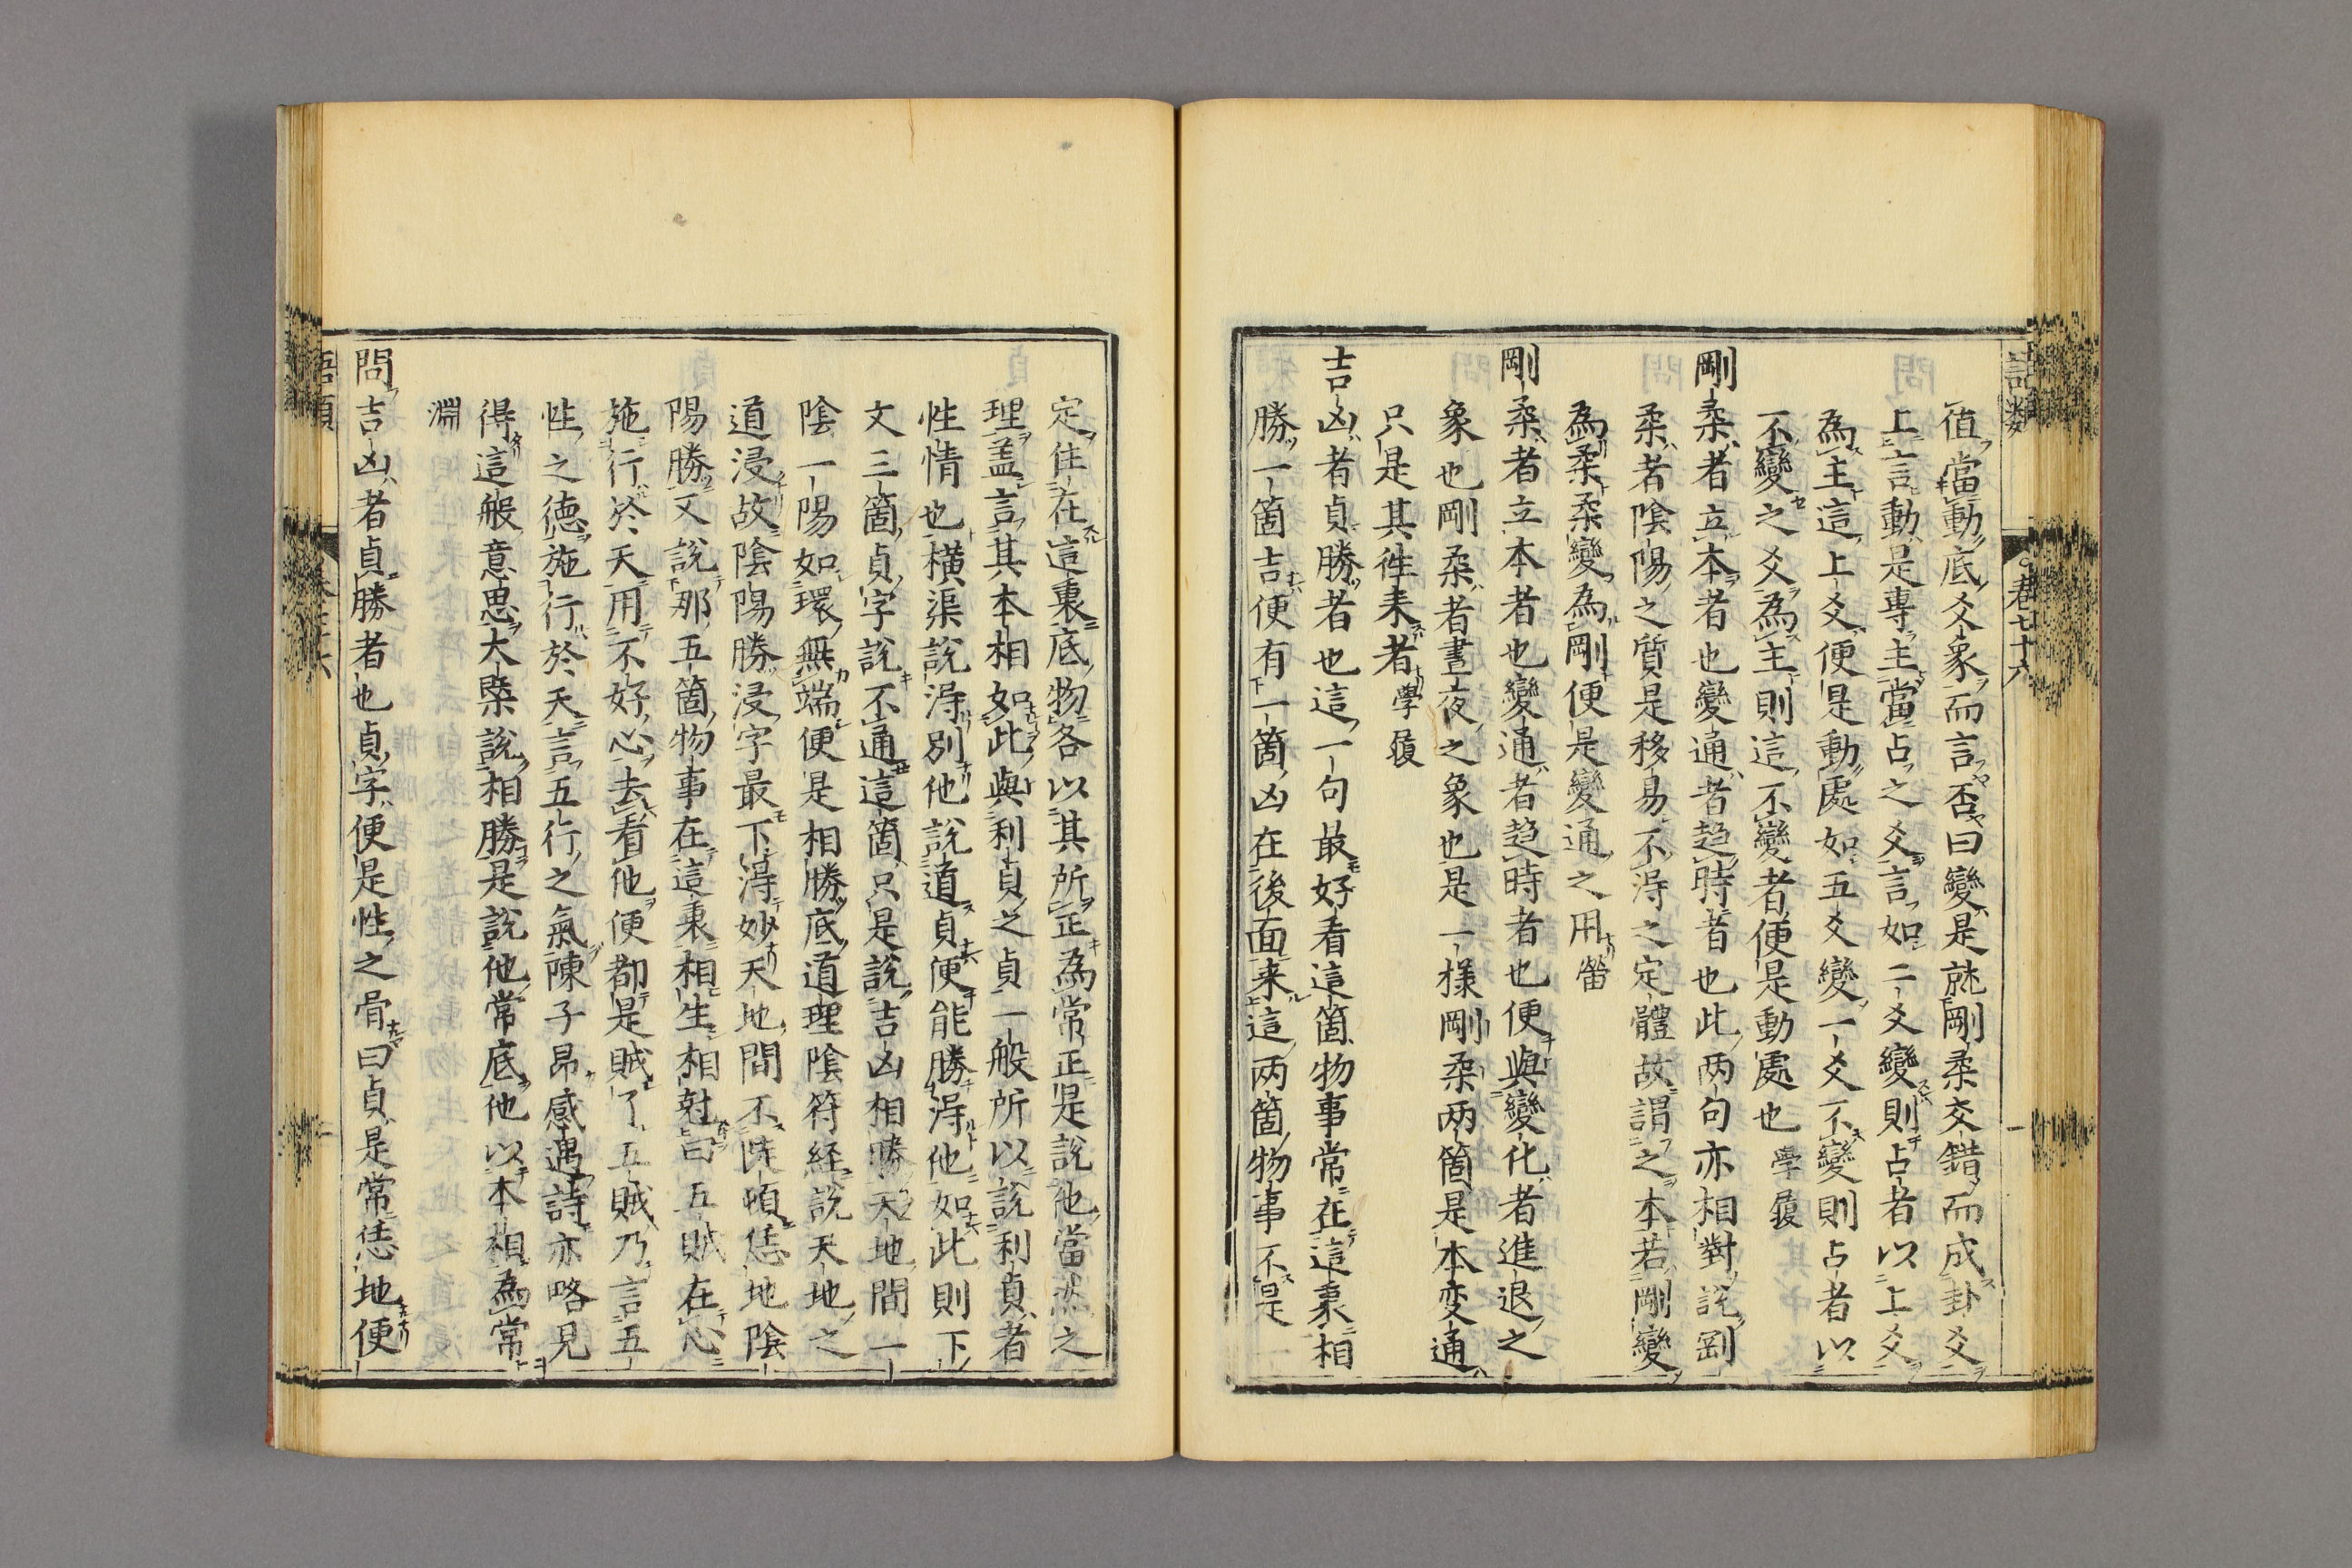 語類
卷七十六
一
值當動底爻象而言否曰變是就剛柔交錯而成卦爻
上言動是專主當占之爻言如二爻變則占者以上爻
為主這上爻便是動處如五爻變一爻不變則占者以
不變之爻為主則這不變者便是動處也學履
剛柔者立本者也變通者趍時者也此两句亦相對說剛
柔者陰陽之質是移易不得之定體故謂之本若剛變
為柔柔變為剛便是變通之用㽦
剛柔者立本者也變通者趍時者也便與變化者進退之
象也剛柔者晝夜之象也是一樣剛柔两箇是本变通
只是其徃来者學履
吉凶者貞勝者也這一句最好看這箇物事常在這裏相
勝一箇吉便有一箇凶在後面来這两箇物事不是一
定住在這裏底物各以其所正為常正是說他當然之
理盖言其本相如此與利貞之貞一般所以說利貞者
性情也橫渠說得別他說道貞便能勝得他如此則下
文三箇貞字說不通這箇只是說吉凶相勝天地間一
陰一陽如環無端便是相勝底道理陰符經說天地之
道浸故陰陽勝浸字最下得妙天地間不陡頓恁地陰
陽勝又說那五箇物事在這裏相生相尅曰五賊在心
施行於天用不好心去看他便都是賊了五賊乃言五
性之德施行於天言五行之氣陳子昂感遇詩亦略見
得這般意思大槩說相勝是說他常底他以本相為常
淵
問吉凶者貞勝者也貞字便是性之骨曰貞是常恁地便
語類